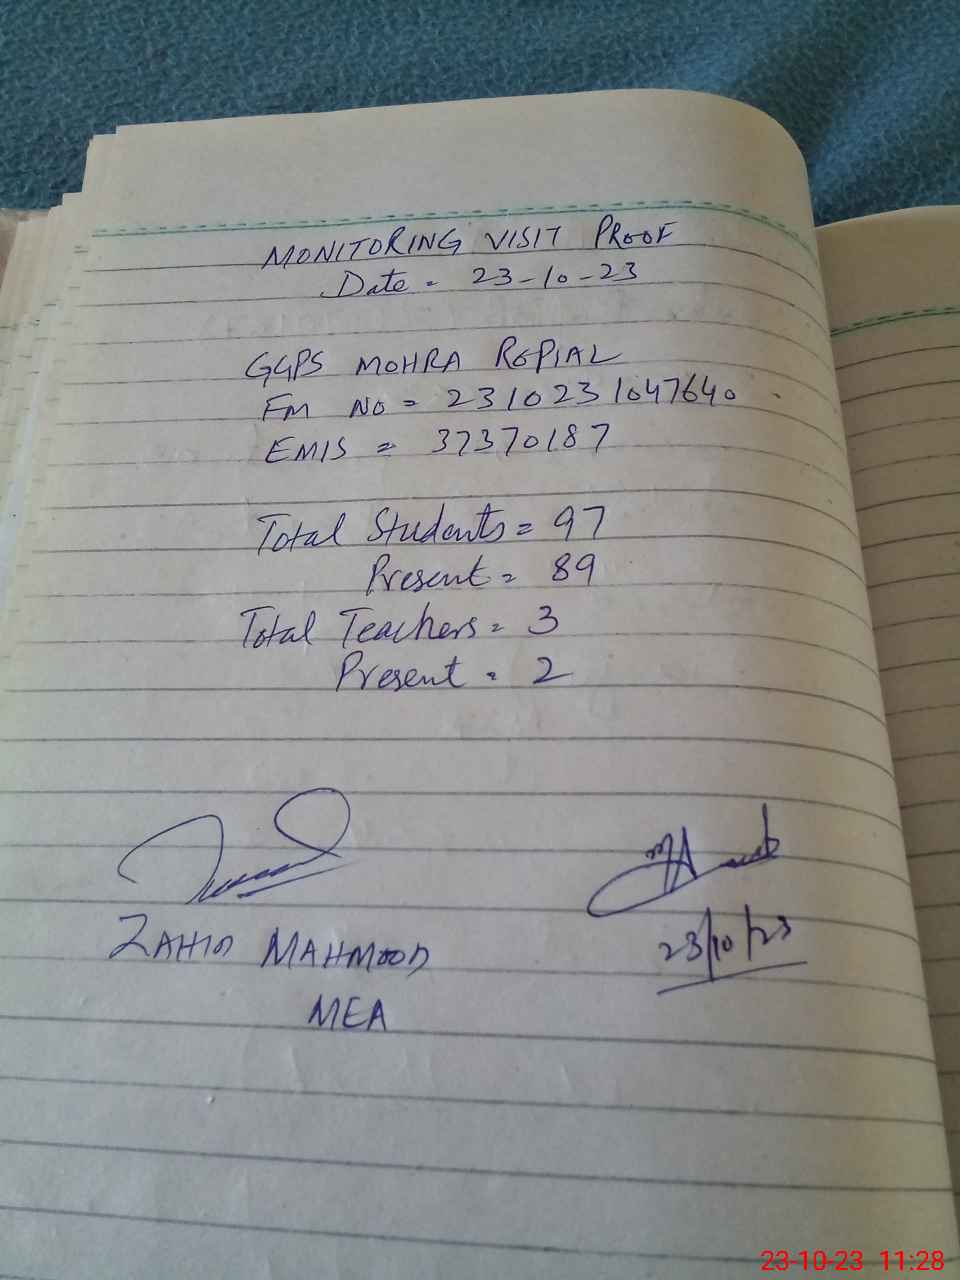 MONITORING VISIT PROOF
Date = 23-10-23
GGPS MOHRA REPIAL
FM NO = 2310231047640
EMIS = 37370187
Total Students = 97
Present = 89
Total Teachers = 3
Present = 2
ZAHID MAHMOOD
MEA
23/10/23
23-10-23 11:28